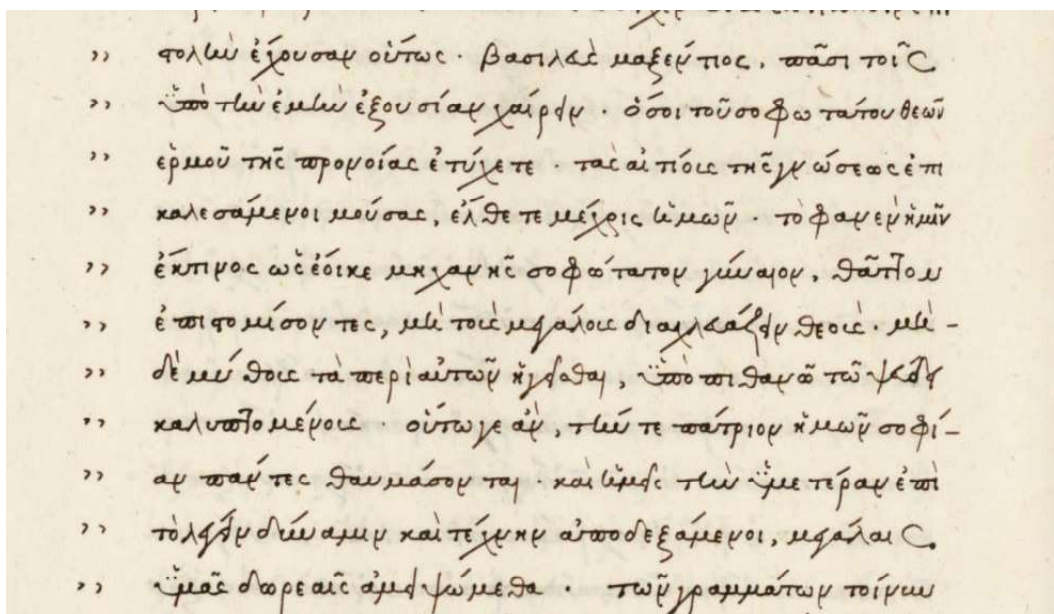 ,, στολὴν ἔχουσαν οὕτως· βασιλεὺς μαξέντιος, πᾶσι τοῖς
,, ὑπὸ τὴν ἐμὴν ἐξουσίαν χαίρειν· ὅσοι τοῦ σοφωτάτου θεῶν
,, ἑρμοῦ τῆς προνοίας ἐτύχετε· τὰς τῆς γνώσεως ἐπι
,, καλεσάμενοι μούσας, ἔλθετε μέχρις ἡμῶν· τὸ φανὲν ἡμῖν
,, ἔκτινος ὡς ἔοικε μηχανῆς σοφώτατον γύναιον, θᾶττον
,, ἐπιστομίσοντες, μὴ τοῖς μεγάλοις διαχλευάζειν θεοῖς· μη-
,, δὲ μύθοις τὰ περὶ αὐτῶν ἡγεῖσθαι, ὑπὸ πιθανῶ τῶ ψεύδει
,, καλυπτομένοις· οὕτω γε ἂν, τήν τε πάτριον ἡμῶν σοφί-
,, αν πάντες θαυμάσονται· καὶ ἡμεῖς τὴν ὑμετέραν ἐπὶ
,, τὸ λέγειν δύναμιν καὶ τέχνην ἀποδεξάμενοι, μεγάλαις
,, ὑμᾶς δωρεαῖς ἀμειψώμεθα· τῶν γραμμάτων τοίνυν